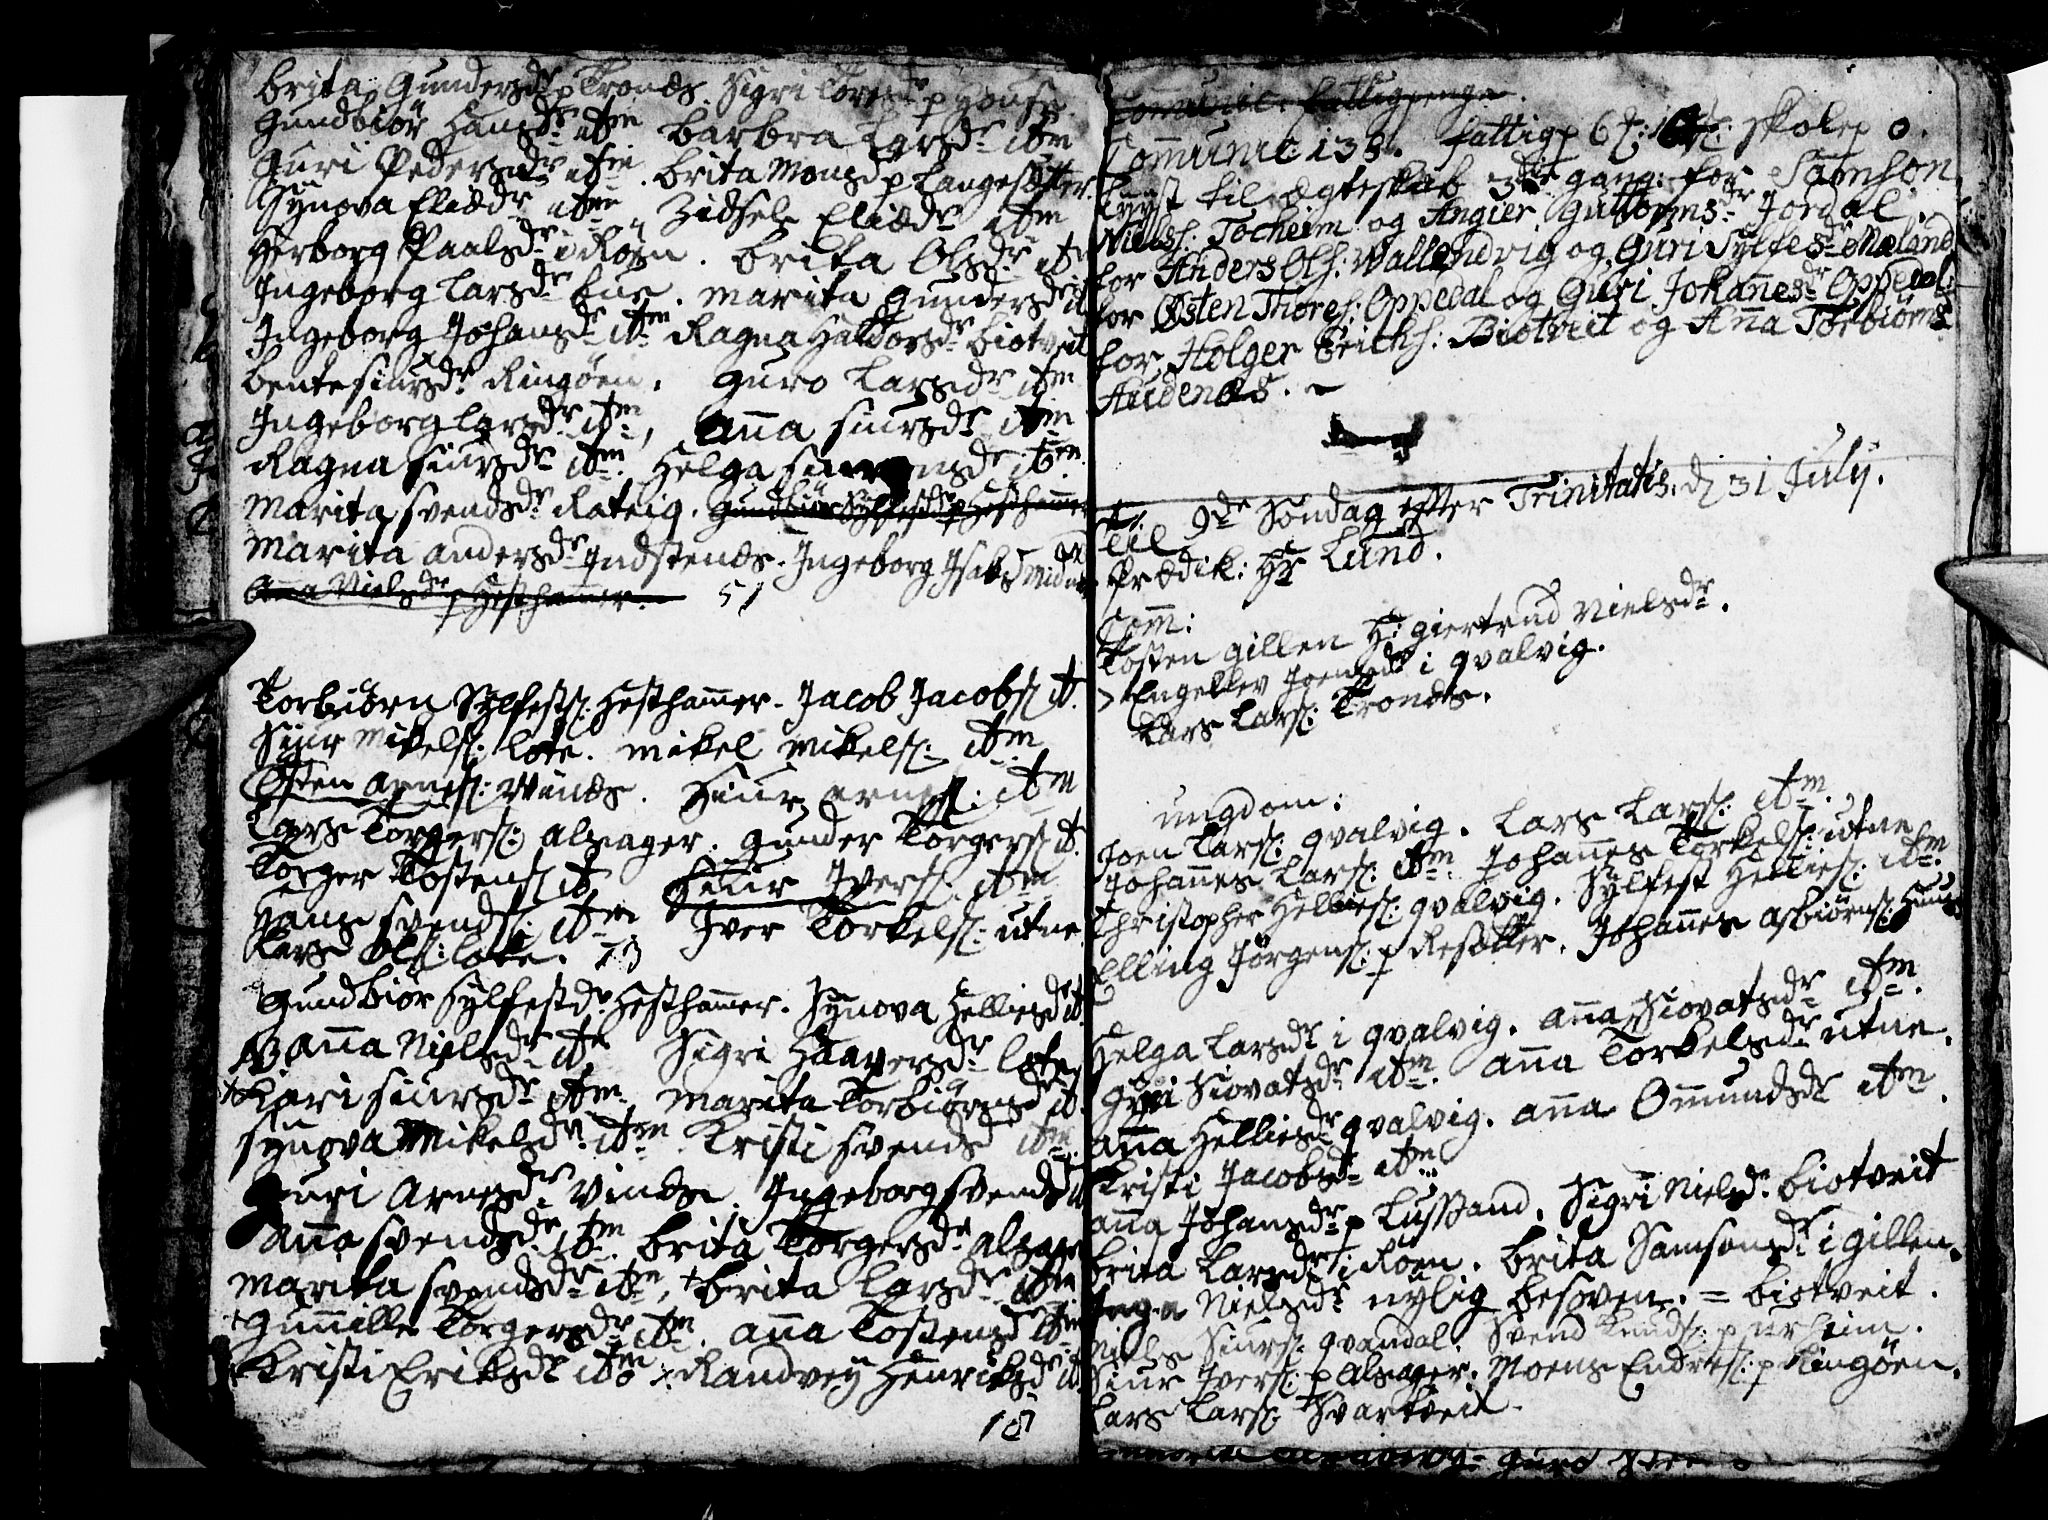 brita Gundersdr p Tronæs. Sigri Toresdr p House
Gundbiør Hansdr itm barbra Larsdr itm
Guri Pedersdr itm. brita Monsdr p Langesetter.
Synova Eliædr itm. Zidsele Eliædr itm
Herborg Paalsdr i Røen. brita Olsdr itm
Ingeborg Larsdr Ene. marita Gundersdr it
Ingeborg Johansdr itm Ragna Haldorsdr biotveit
bente siursdr Ringøen. Guro Larsdr itm
Ingeborg Larsdr itm, anna siursdr itm
Ragna siursdr itm. Helga siur itm.
Marita svendsdr Rateig. Gundbiør Sylfestdr p Hesthammer
Marita andersdr Indstenæs. Ingeborg Isaksdr
Anna Nielsdr p Hesthammer. 51
Torbiørn Sylfests: Hesthammer. Jacob Jacobs: it.
Siur mikels: lote. mikel mikels: itm
Østen arnes: Vinæs. Siur arnes: itm
Lars Torgers: alsager. gunder Torgers: it.
Torger Tostens: it. Siur Ivers: itm
Hans svends: itm. Iver Torkels: utne
Lars Ols: lote. 13
Gundbiør sylfestdr. Hesthammer. Synova Helliesdr it.
anna Nielsdr it. Sigri Haaversdr lote
+ Kari siursdr itm. marita Torbiørnsdr it.
synova Mikelsdr. itm. Kristi svendsdr itm.
Guri Arnesdr Vinæs. Ingeborg svendsdr it
anna svendsdr itm. brita Torgersdr alsager
marita svendsdr itm, + brita Larsdr itm
+ Gunnille Torgersdr itm. anna Tostensdr itm
Kristi Eriksdr itm. Randvey Henriksdr it.
18
Communic: fattigpenge.
Communic: 138. fattigp 6 skolep 0.
Lyyst til ægteskab 3die gang: for Samson
Niels: Tocheim og Angier Guttormsdr Jordal.
for Anders Ols: Wallendvig og Guri Sylfesdr Mæland
for Østen Thores: Oppedal og Guri Johannesdr Oppedal:
for Holger Erichs: Biotveit og Anna Torbiørns
Audenæs. –
til 9de Søndag efter Trinitatis. d 31 July.
Prædik: Hr Lund.
Comm:
Tosten gillen H: giertrud Nielsdr.
> Engellev Joensdr i qvalvig.
Lars Lars: Tronæs.
ungdom:
Joen Lars: qvalvig. Lars Lars: itm.
Johannes Lars: itm. Johannes Torkels: utne
Christopher Hellies: qvalvig. Sylfest Hellies: itm.
Elling Jørgens: p Resetter. Johannes asbiørns:
Helga Larsdr i qvalvig. anna Siovatsdr itm.
Guri Siovatsdr itm. anna Torkelsdr utne.
anna Helliesdr qvalvig. anna Omundsdr itm.
Kristi Jacobsdr itm.
anna Johansdr p Lussand. Sigri Nielsdr. biotveit
brita Larsdr i Røen. brita Samsonsdr i gillen.
Inga Nielsdr nylig besoven. = biotveit.
Niels Siurs: qvandal. Svend Knuds: p urheim.
Siur Ivers: p alsager. Moens Endres: p Ringøen.
Lars Lars: Svartveit.